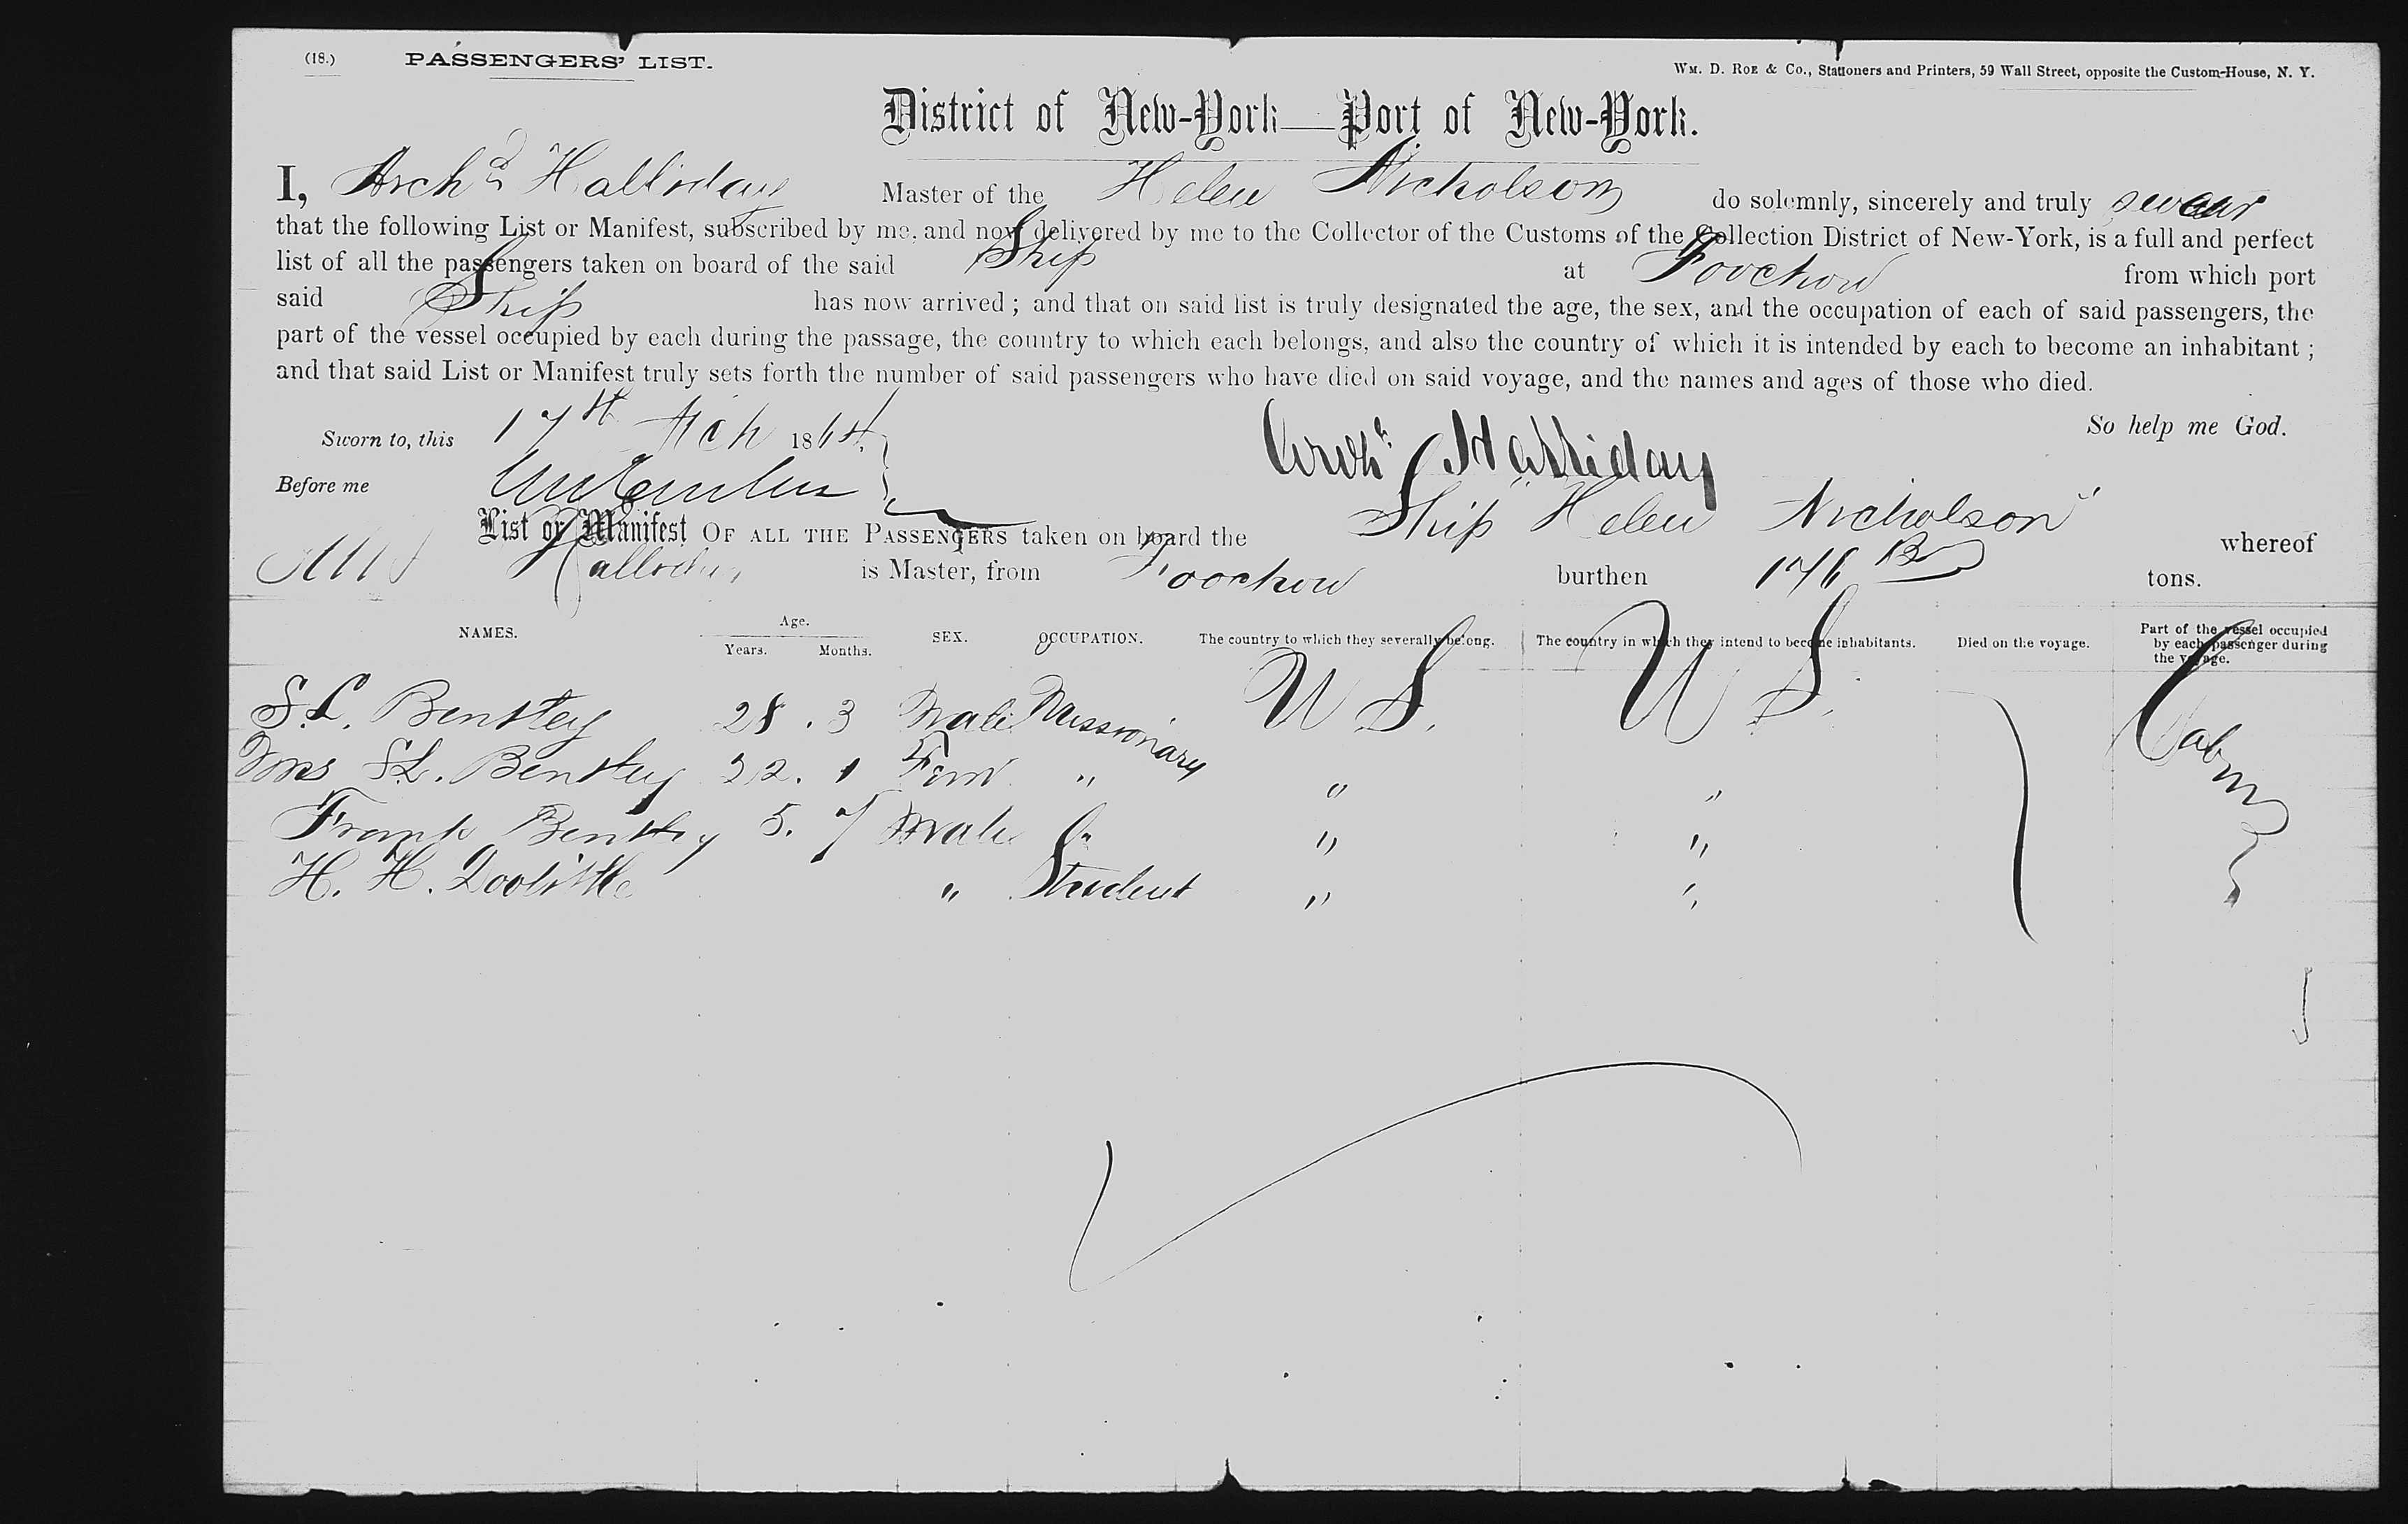 (18.) PASSENGERS' LIST. WM. D. ROE & CO., Stationers and Printers, 59 Wall Street, opposite the Custom-House, N. Y.
District of New-York—Port of New-York.
I, Archd Halliday Master of the Helen Nicholson do solemnly, sincerely and truly swear
that the following List or Manifest, subscribed by me, and now delivered by me to the Collector of the Customs of the Collection District of New-York, is a full and perfect
list of all the passengers taken on board of the said Ship at Foochow from which port
said Ship has now arrived; and that on said list is truly designated the age, the sex, and the occupation of each of said passengers, the
part of the vessel occupied by each during the passage, the country to which each belongs, and also the country of which it is intended by each to become an inhabitant;
and that said List or Manifest truly sets forth the number of said passengers who have died on said voyage, and the names and ages of those who died.
Sworn to, this 17th Mch 1864. Archd Halliday So help me God.
Before me
List or Manifest OF ALL THE PASSENGERS taken on board the Ship "Helen Nicholson" whereof
Halliday is Master, from Foochow burthen tons.
NAMES. Age. Years. Months. SEX. OCCUPATION. The country to which they severally belong. The country in which they intend to become inhabitants. Died on the voyage. Part of the vessel occupied by each passenger during the voyage.
S. L. Benstey 28. 3 Male Missionary U S. U S. Cabin
Mrs S L. Benstey 22. 1 Fem " " "
Frank Benstey 5. 7 Male " " "
H. H. Doolittle " Student " "